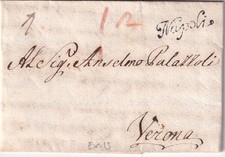 12
Napoli
Al Sig. Anselmo Palazzoli
Verona